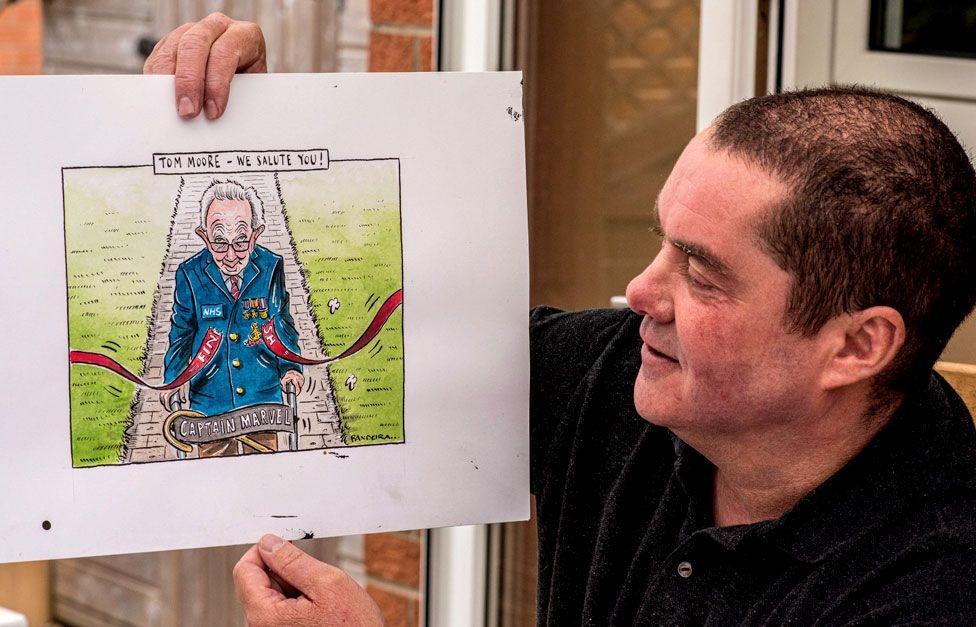 TOM MOORE - WE SALUTE YOU!
NHS
FIN SH
CAPTAIN MARVEL
BANDEIRA...